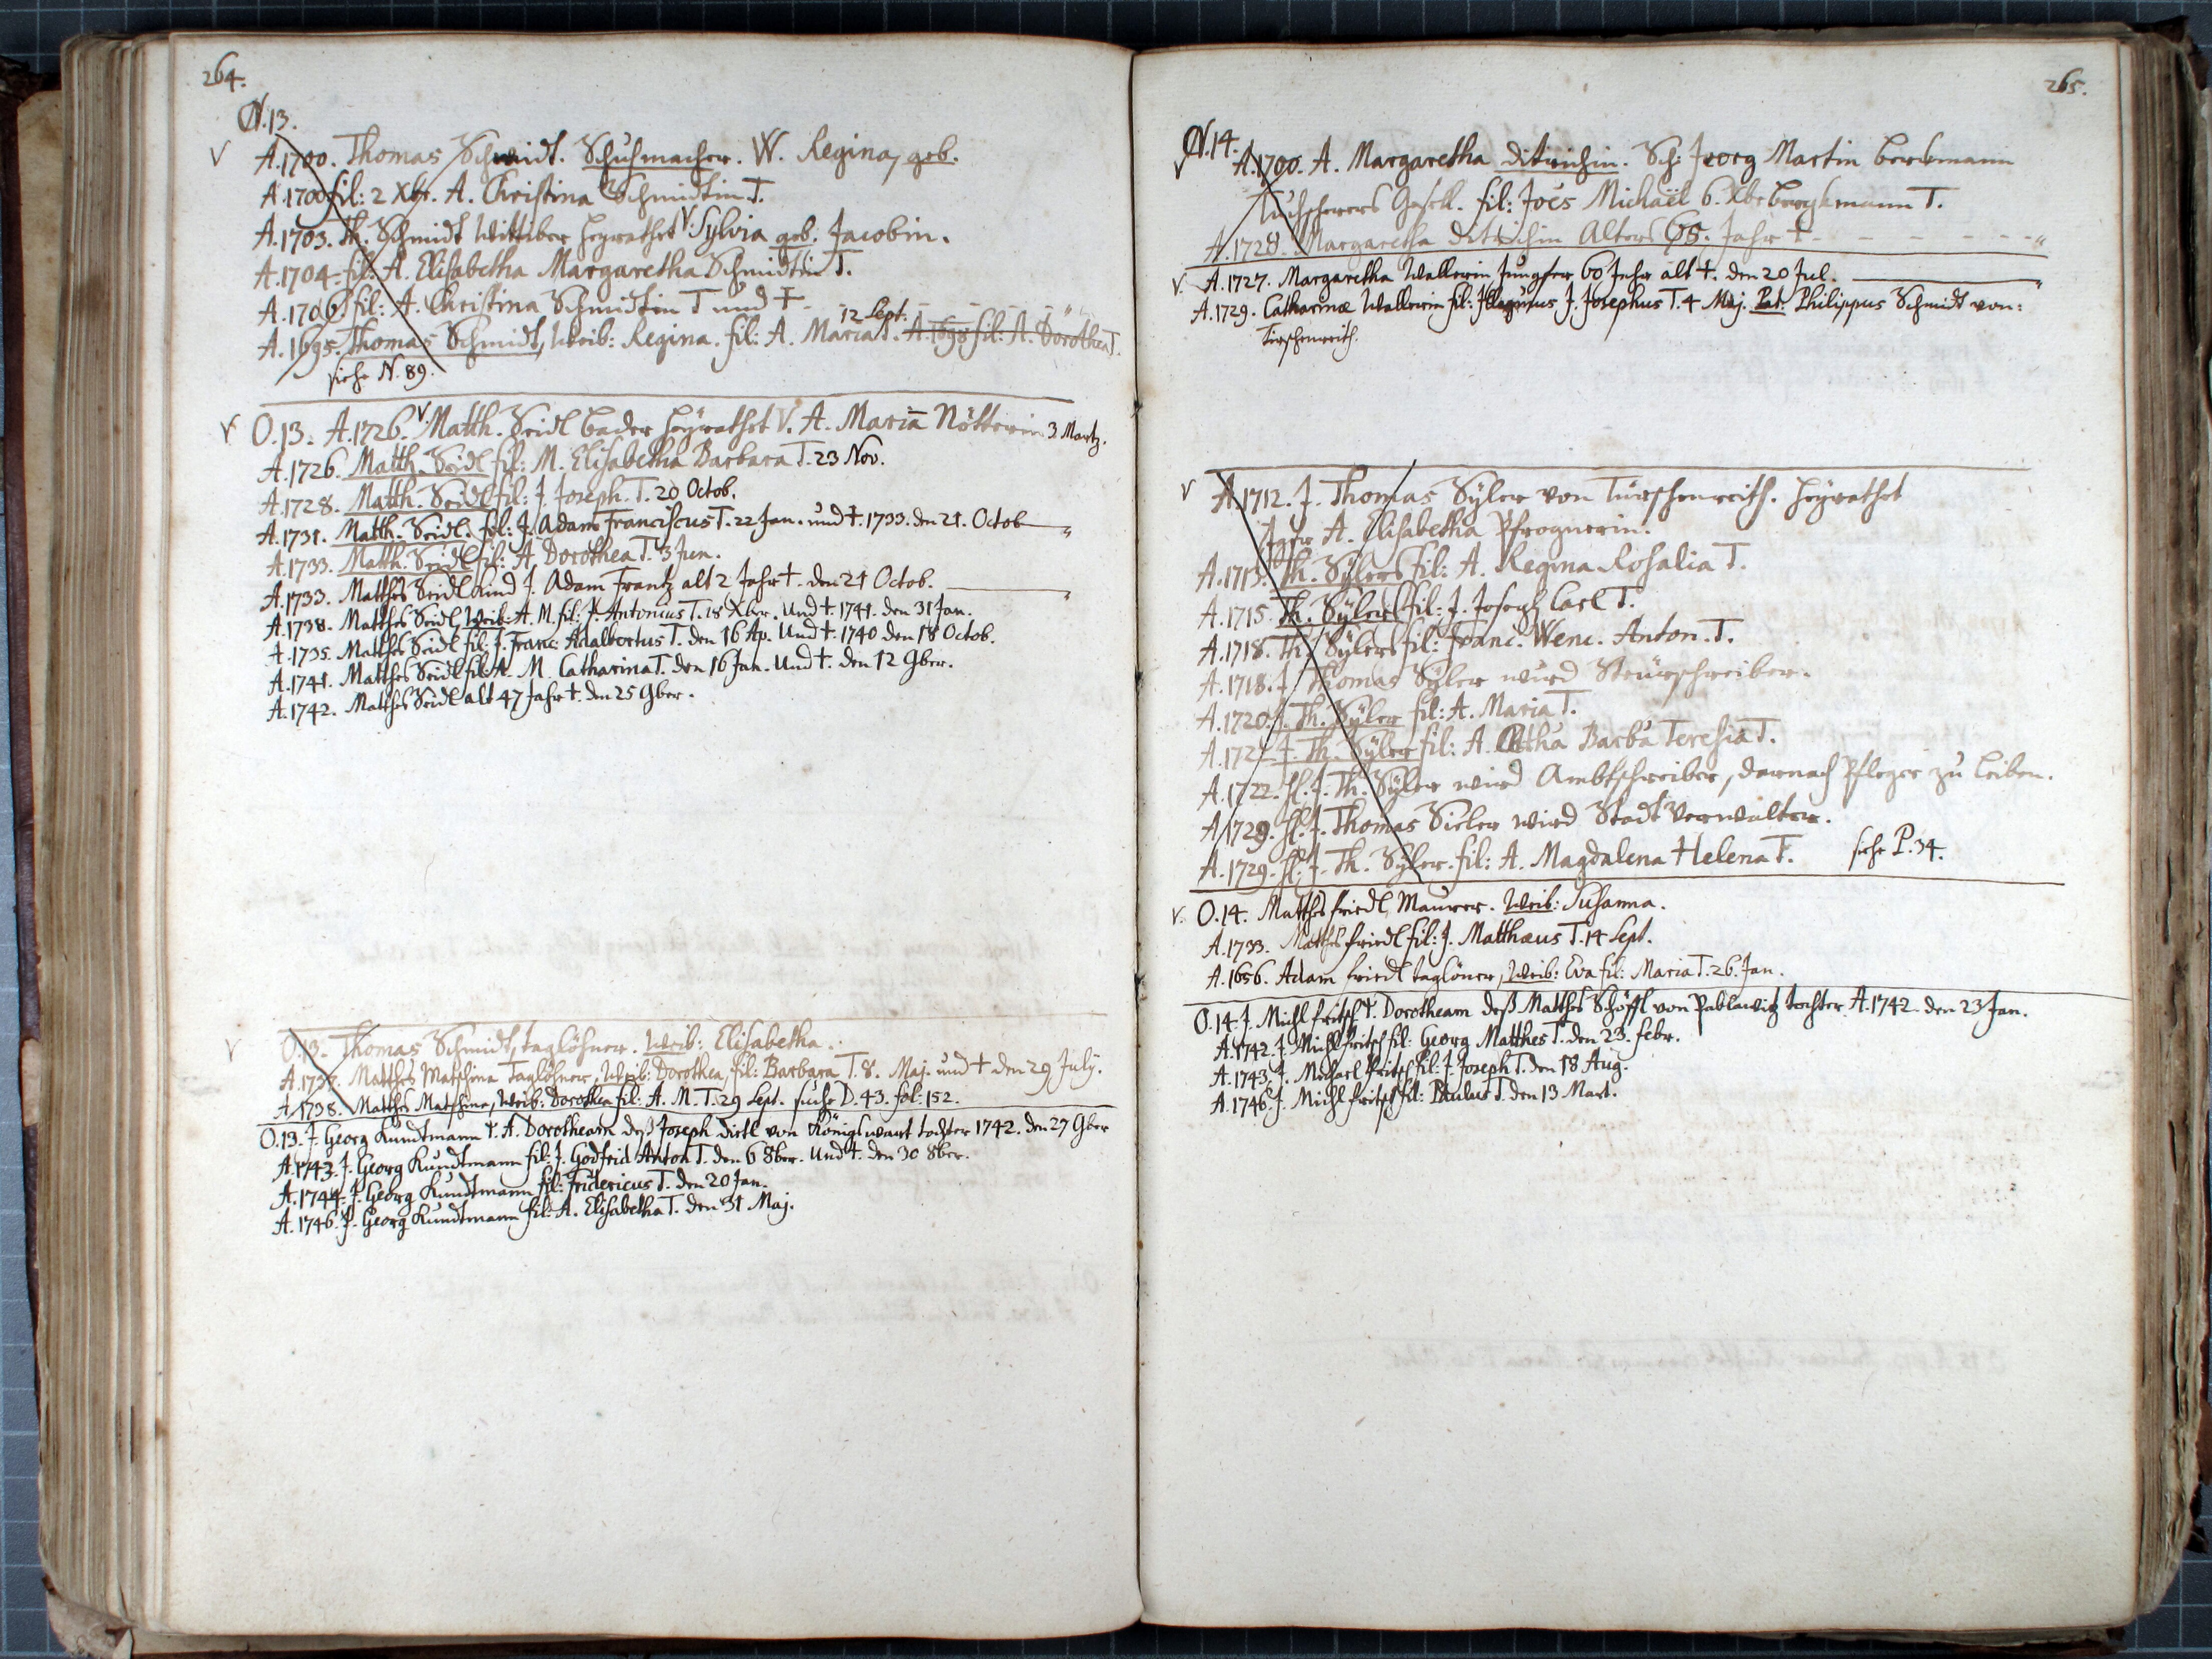 264.
N.13.
A.1700. Thomas Schmidt. Schuhmacher. W. Regina, geb.
A.1700 fil: 2 Xbr. A. Christina Schmidtin T.
A.1703. Th. Schmidt Wittiber heyrathet V. Sylvia geb. Jacobin.
A.1704. fil: A. Elisabetha Margaretha Schmidtin T.
A.1706. fil: A. Christina Schmidtin T und †
12 Sept.
A.1695. Thomas Schmidt, Weib: Regina. fil: A. Maria T. A.1698 fil: A. Dorothea T.
siehe N. 89.
O.13. A.1726. Matth. Seidl bader heyrathet V. A. Maria Nötterin 3 Martz.
A.1726. Matth. Seidl fil: M. Elisabetha Barbara T. 23 Nov.
A.1728. Matth. Seidl fil: J. Joseph. T. 20 Octob.
A.1731. Matth. Seidl. fil: J. Adam Franciscus T. 22 Jan. und †. 1733. den 21. Octob
A.1733. Matth. Seidl fil: A. Dorothea T. 3 Jun.
A.1733. Matthes Seidl Kind J. Adam Frantz alt 2 Jahr †. den 21 Octob.
A.1738. Matthes Seidl, Weib: A. M. fil: J. Antonius T. 18 Xber. Und †. 1741. den 31 Jan.
A.1735. Matthes Seidl fil: J. Franc. Adalbertus T. den 16 Ap. Und †. 1740 den 18 Octob.
A.1741. Matthes Seidl fil: A. M. Catharina T. den 16 Jan. Und †. den 12 9ber.
A.1742. Matthes Seidl alt 47 Jahr †. den 25 9ber.
O.13. Thomas Schmidt, taglöhner. Weib: Elisabetha.
A.1737. Matthes Matschina Taglöhner, Weib: Dorothea, fil: Barbara T. 8. Maj. und † den 29 July.
A.1738. Matthes Matschina, Weib: Dorothea fil: A. M. T. 29 Sept. suche D. 43. fol: 152.
O.13. J. Georg Kundtmann †. A. Dorotheam deß Joseph dietl von Königswart tochter 1742. den 27 9ber
A.1743. J. Georg Kundtmann fil: J. Godfrid Anton T. den 6 8ber. Und †. den 30 8ber.
A.1744. J. Georg Kundtmann fil: Fridericus T. den 20 Jan.
A.1746. J. Georg Kundtmann fil: A. Elisabetha T. den 31 Maj.
265.
N.14.
A.1700. A. Margaretha ditrichin. Sch: Georg Martin berckmann
Tuchscherers Gesell. fil: Joes Michaël 6. Xbr bergkmann T.
A.1728. Margaretha Ditrichin Alters 65. Jahr †
A.1727. Margaretha Wallerin Jungfer 60 Jahr alt †. den 20 Jul.
A.1729. Catharinae Wallerin fil: Illegitimus J. Josephus T. 4 Maj. Pat: Philippus Schmidt von:
Tirschenreith.
A.1712. J. Thomas Syler von Türschenreith. heyrathet
Jgfr A. Elisabetha Pfrognerin.
A.1713. Th. Sylers fil: A. Regina Rosalia T.
A.1715. Th. Sylers fil: J. Joseph Carl T.
A.1718. Th. Sylers fil: Franc. Wenc. Anton. T.
A.1718. J. Thomas Syler wurd Steürschreiber.
A.1720. J. Th. Syler fil: A. Maria T.
A.1721. J. Th. Syler fil: A. Barba Teresia T.
A.1722. H. J. Th. Syler wird Ambtschreiber, darnach Pfleger zu Leiben.
A.1729. H. J. Thomas Sieler wird Stadt Verwalter.
A.1729. H. J. Th. Syler. fil: A. Magdalena Helena T. siehe P. 34.
O.14. Matthes friedl, Maurer. Weib: Susanna.
A.1733. Matthes friedl fil: J. Matthaeus T. 14 Sept.
A.1656. Adam friedl taglöner, Weib: Eva fil: Maria T. 26. Jan.
O.14. J. Michl fritsch †. Dorotheam deß Matthes Schöffl von Pablawitz tochter. A.1742 den 23 Jan.
A.1742. J. Michl fritsch fil: Georg Matthes T. den 23. febr.
A.1743. J. Michael fritsch fil: J. Joseph T. den 18 Aug.
A.1746. J. Michl fritsch fil: Paulus T. den 13 Mart.